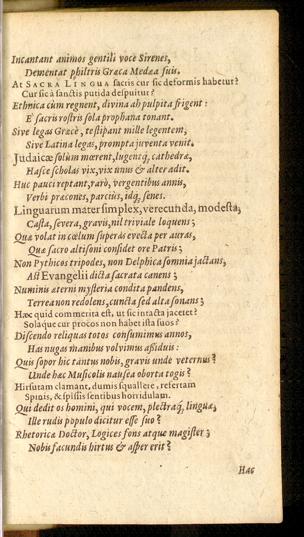 Incantant animos gentili voce Sirenes,
Dementat philtris Græca Medæa suis.
At SACRA LINGUA sacris cur sic deformis habetur?
Cur sic à sanctis putida despuitur?
Ethnica cùm regnent, divina ab pulpita frigent:
E sacris rostris sola prophana tonant.
Sive legas Græcè, testipant mille legentem,
Sive Latina legas, prompta juventa venit.
Judaicæ solùm mœrent, lugentq́, cathedræ,
Hasce scholas vix, vix unus & alter adit.
Huc pauci reptant, rarò, vergentibus annis,
Verbi præcones, parciùs, idq́, senes.
Linguarum mater simplex, verecunda, modesta,
Casta, severa, gravis, nil triviale loquens;
Quæ volat in cœlum superas evecta per auras,
Quæ sacro altisoni considet ore Patris;
Non Pythicos tripodes, non Delphica somnia jactans,
Ast Evangelii dicta sacrata canens;
Numinis æterni mysteria condita pandens,
Terrea non redolens, cuncta sed alta sonans;
Hæc quid commerita est, ut sic intacta jacetet?
Sola que cur procos non habet ista suos?
Discendo reliquas totos consumimus annos,
Has nugas manibus volvimus assiduis:
Quis sopor hic tantus nobis, gravis unde veternus?
Unde hæc Musicolis nausea oborta togis?
Hirsutam clamant, dumis squallere, refertam
Spinis, & spissis sentibus horridulam.
Qui dedit os homini, qui vocem, plectraq́, linguæ,
Ille rudis populo dicitur esse suo?
Rhetoricæ Doctor, Logices fons atque magister;
Nobis facundis hirtus & asper erit?
Hac